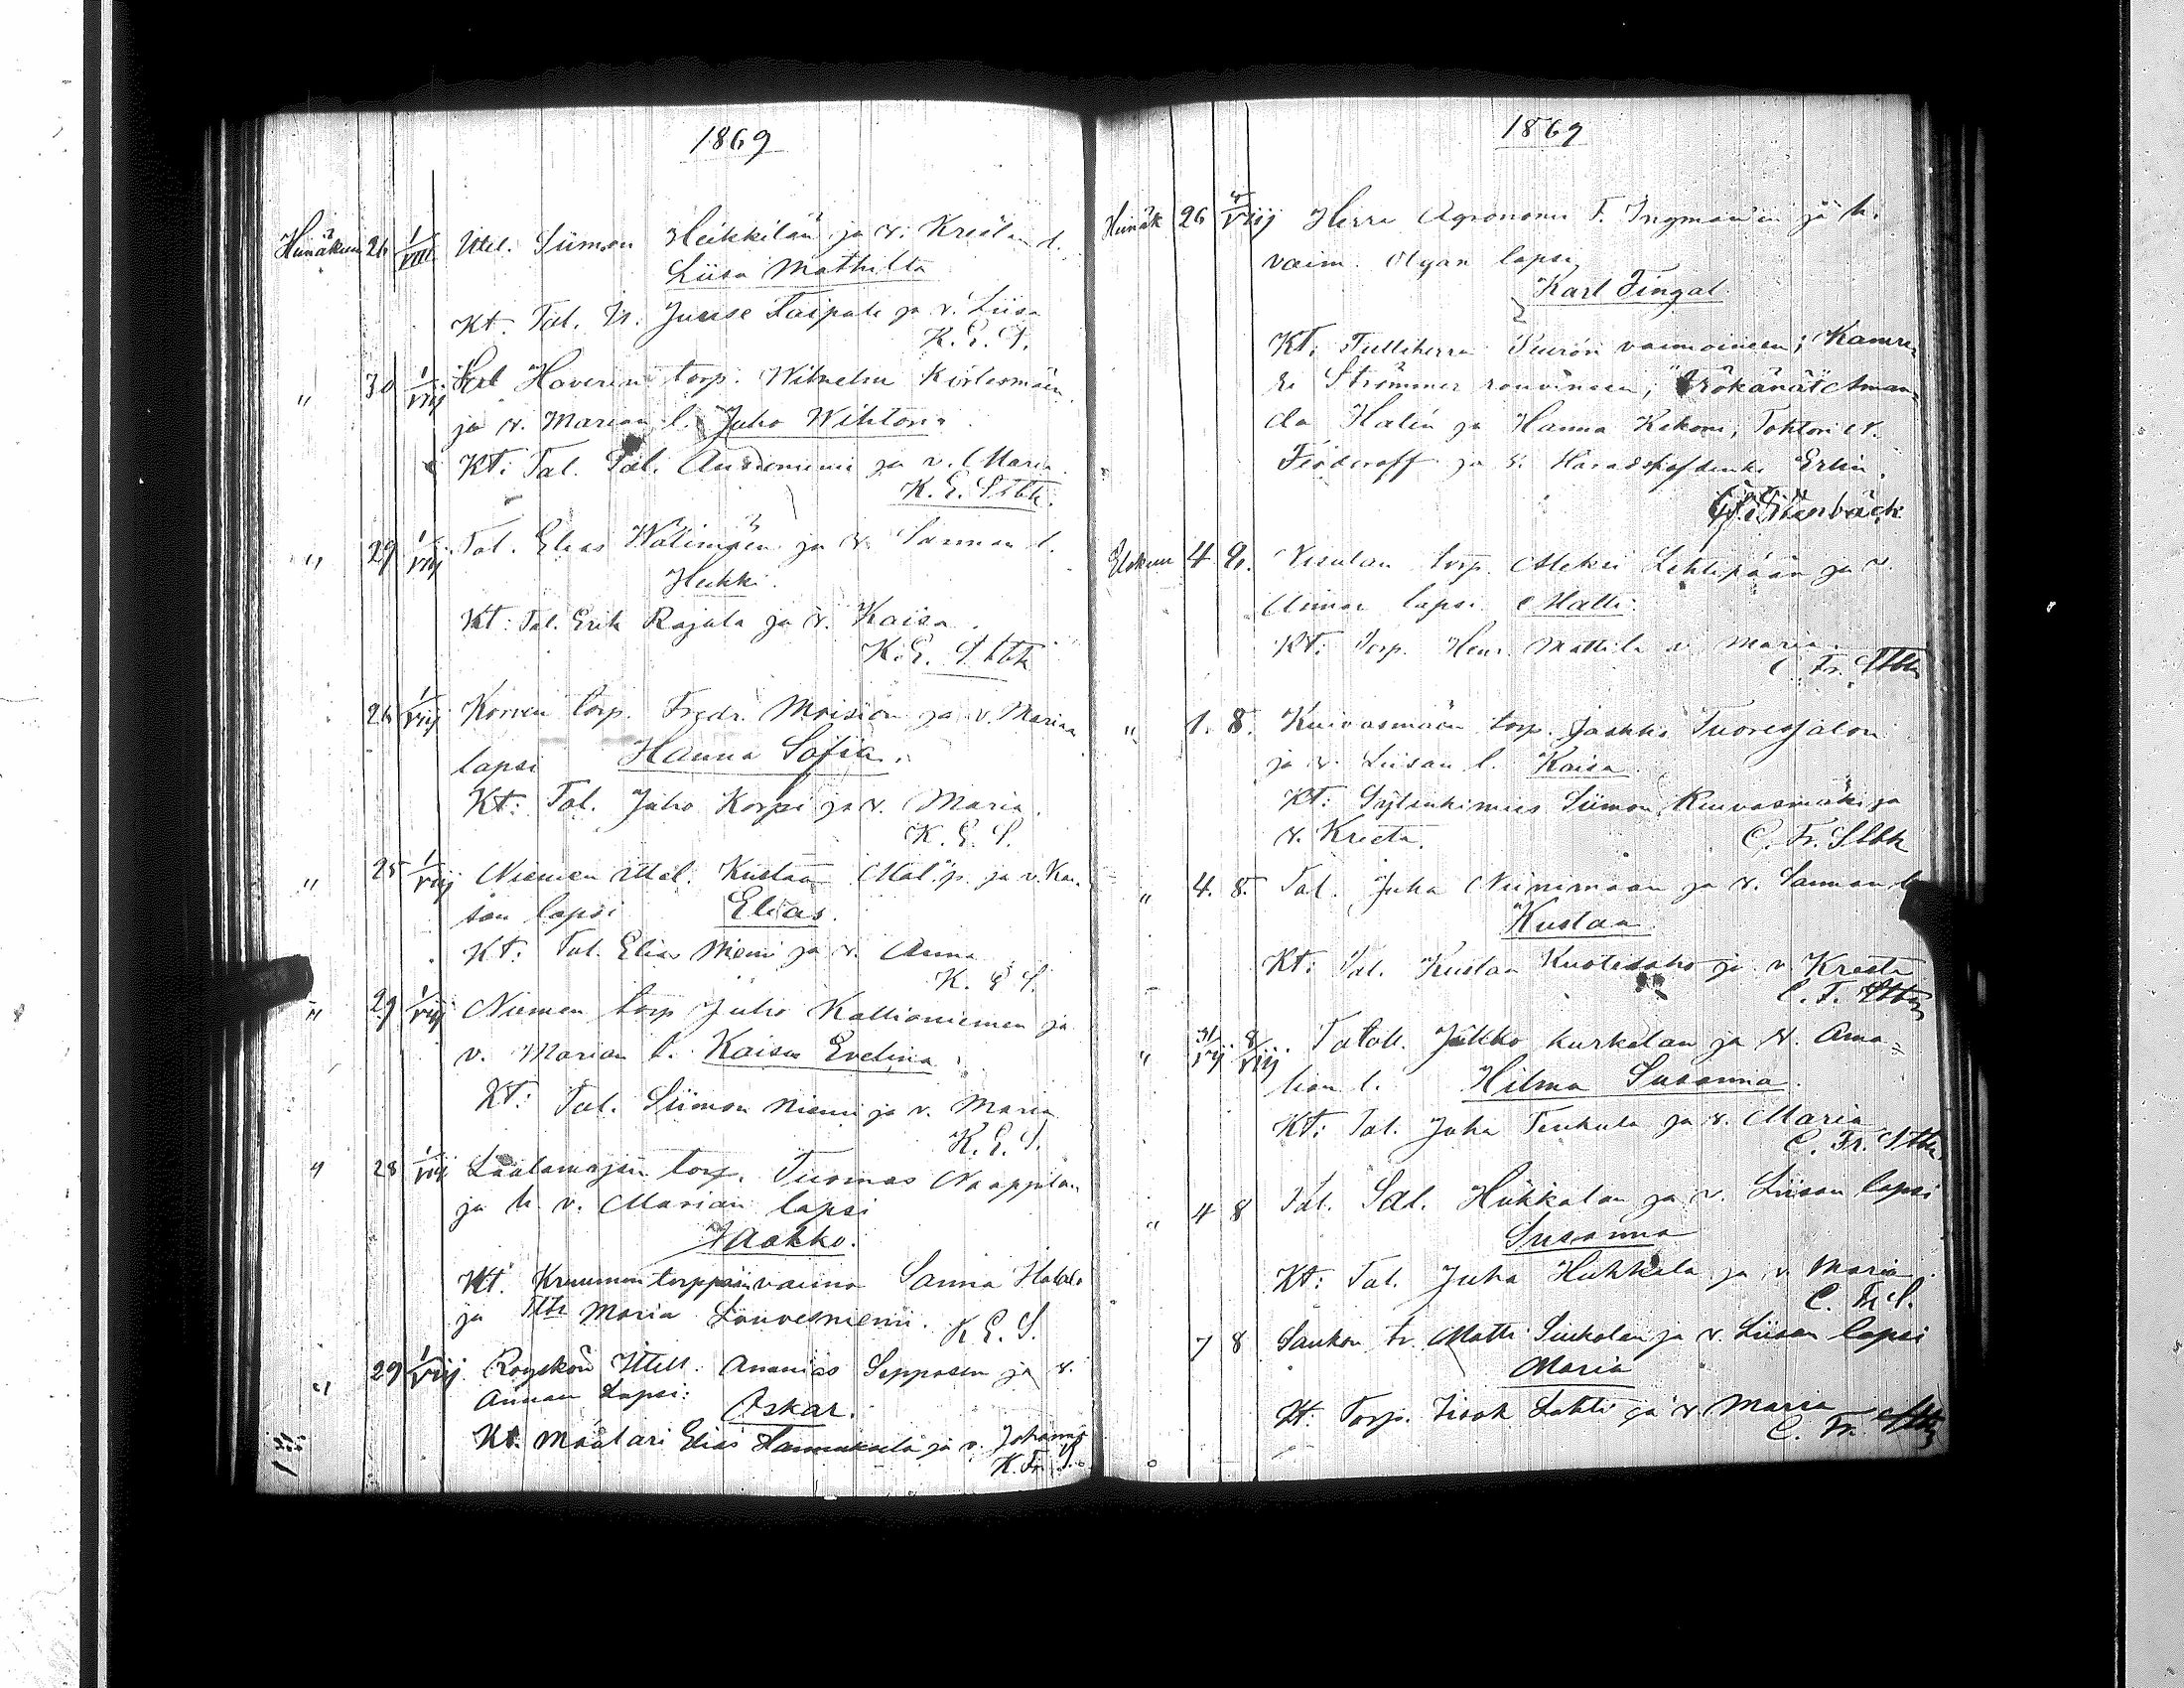 1869
Heinäkuu 26 1/VIII Ittel. Siimon Heikkilän ja v. Kreetan l.
Liisa Mathilta
Kt. Tal. Juuse Taipale ja v. Liisa
K. E. S.
" 30 1/VIII Haverin torp. Wilhelm
ja v. Marian l. Juho Wihtori.
Kt: Tal. ja v. Maria
K. E. Stbk.
" 29 1/VIII Tal. Elias Wälimäen ja v. Sannan l.
Heikki.
Kt: Tal. Erik Rajala ja v. Kaisa.
K. E. Stbk
26 1/VIII Korven torp. Fredr. Moision ja v. Marian
lapsi Hanna Sofia.
Kt: Tal. Juho Korpi ja v. Maria.
K. E. S.
" 25 1/VIII Niemen Ittel. Kustaa ja v. Kai-
san lapsi Elias.
Kt: Tal. Elias Niemi ja v. Anna
K. E S.
" 29 1/VIII Niemen torp Juho Kallioniemen ja
v. Marian l. Kaisa Evelina.
Kt: Tal. Siimon Niemi ja v. Maria
K. E. S.
" 28 1/VIII torp. Tuomas Naappilan
ja h. v. Marian lapsi
Jaakko.
Kt. Kruunun torppari vaimo Sanna
ja Maria Louvesniemi. K E. S.
" 29 1/VIII Ittell. Ananias Sepposen ja v.
Annan Lapsi:
Oskar.
Kt. Määlari Elias Hannuksela ja v. Johanna
K. Fr. S.
1869
Heinäk 26 4/VIII Herra Agronomi F. Ingman'in ja h.
vaim. Olgan lapsi
Karl Fingal
Kt; Tulliherra vaimoineen; Kamre-
ri Strömmer rouvineen; Frökänät Aman-
da Halén ja Hanna Kekoni, Tohtori N.
Feodoroff ja v. Erlin.
C. F. Stenbäck
Elokuu 4 8. torp. Aleksi Lehtipään ja v.
Annan lapsi Matti.
Kt: Torp. Henr. Mattila v. Maria.
C. Fr. Stbk
" 1. 8. Kuivasmäen torp. Jaakko Tuoresjalon
ja v. Liisan l. Kaisa.
Kt: Siimon Kuivasmäki ja
v. Kreeta. C. Fr. Stbk
" 4. 8. Tal. Juha Niinimaan ja v. Sannan l.
Kustaa
Kt: Tal. Kustaa Kuotesaho ja v Kreeta
C. F. Stbk
" 31/VII 8/VIII Taloll. Jaakko Kurkelan ja v. Ama-
lian l. Hilma Susanna.
Kt: Tal. Juha ja v. Maria
C. Fr. Stbk.
" 4 8 Tal. Sal. Huhkalan ja v. Liisan lapsi
Susanna
Kt: Tal. Juha Huhkala ja v. Maria.
C. Fr S.
7 8 Matti ja v. Liisan lapsi
Maria
Kt: Torp. Isak Lahti ja v. Maria
C. Fr. Stbk